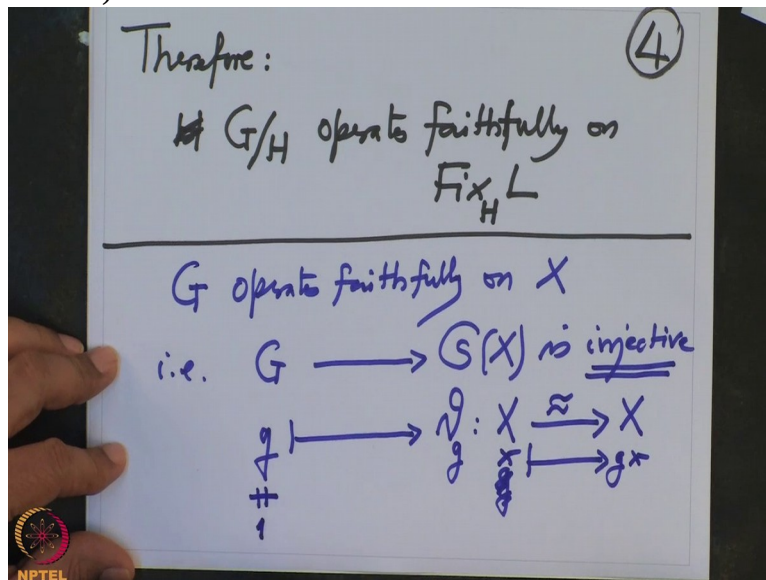 Therefore:
4
G/H operates faithfully on
Fix_H L
G operates faithfully on X
i.e. G ⟶ 𝔖(X) is injective
g ⟼ ϑ_g : X ≈⟶ X
x ⟼ gx
≠
1
NPTEL